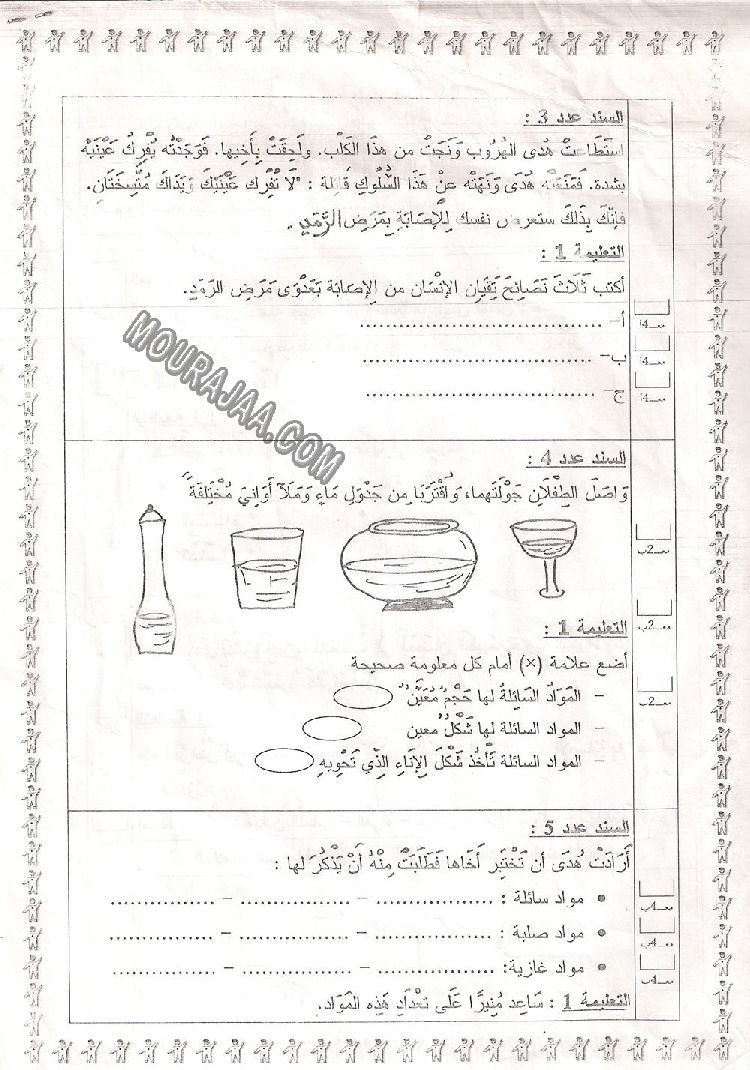 السند عدد 3 :
استَطَاعتْ هُدى الهُروب وَنَجَتْ من هذَا الكَلْب. ولَحِقَتْ بِأَخيها. فَوَجَدَتْه يُفْرِكُ عَيْنَيْه
بشدة. فَمَنَعَتْه هُدَى وَنَهَتْه عنْ هَذَا السُّلوكِ قَائِلة : "لاَ تُفْرِك عَيْنَيْكَ وَيَدَاكَ مُتَّسِخَتَانِ.
فإنّكَ بِذَلكَ ستعرض نفسك لِلإصَابَةِ بِمَرَضِ الرَّمَدِ.
التعليمة 1 :
أكتب ثَلاَثَ نَصَائِحَ يَقِيَانِ الإنْسَان من الإصَابَة بَعَدْوَى مَرَضِ الرَمَدِ.
أ- ......................................
مـــ4أ
ب- ......................................
مـــ4أ
ج- ......................................
مـــ4أ
MOURAJAA.COM
السند عدد 4 :
وَاصَلَ الطِفْلاَنِ جَوْلَتَهما، وَاقْتَرَبَا من جَدْوَلِ مَاءٍ وَمَلَآ أَوَانِيَ مُخْتَلِفَة
مـــ2ب
التعليمة 1 :
مـــ2ب
أضع علامة (×) أمام كل معلومة صحيحة
- المَوَادُ السَائِلةُ لها حَجْمٌ مُعَيَّنٌ
مـــ2ب
- المواد السائلة لها شَكْلٌ معين
- المواد السائلة تَأْخُذ شَكْلَ الإِنَاءِ الذِي تَحْوِيهِ
السند عدد 5 :
أَرَادَتْ هُدَى أن تَخْتَبِر أَخَاها فَطَلَبَتْ مِنْهُ أَنْ يَذْكُرَ لها :
• مواد سائلة : .................. - ................ - ................
مـــ4ب
• مواد صلبة : .................. - ................ - ................
مـــ4ب
• مواد غازية: .................. - ................ - ................
مـــ4ب
التعليمة 1 : سَاعِد مُنِيرًا عَلَى تعْدَادِ هَذِه المَوَاد.